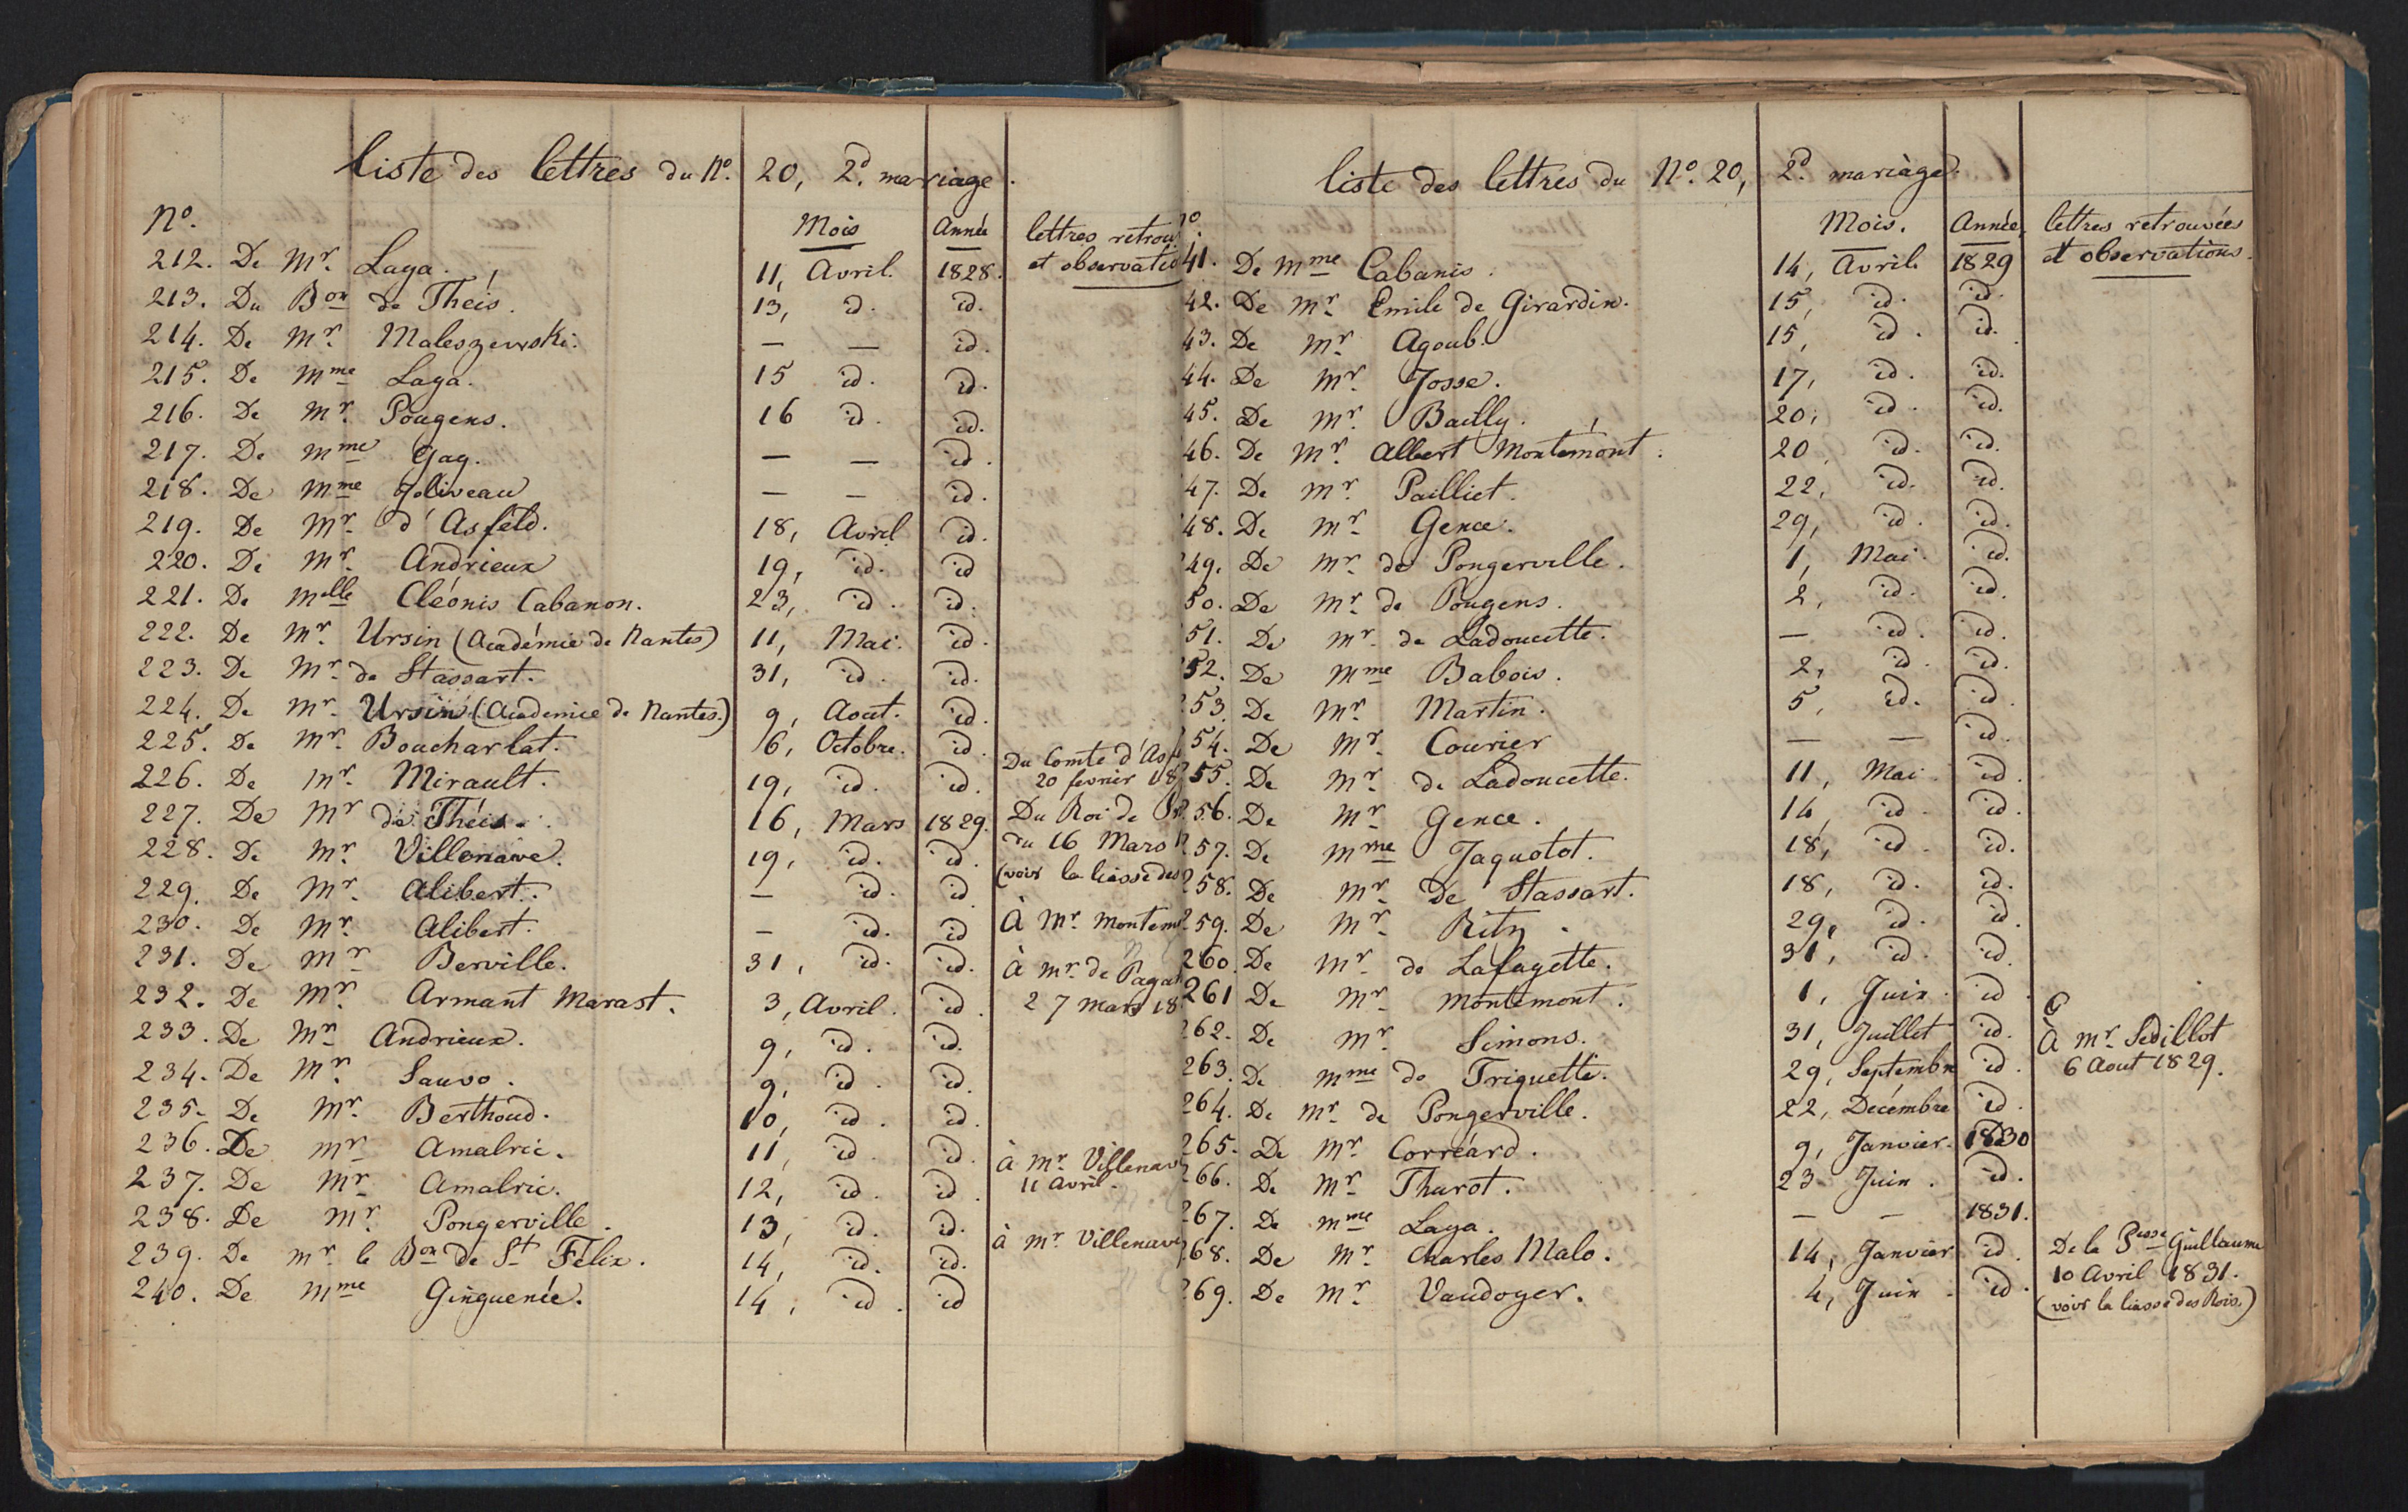 Liste des lettres du N.º 20, 2.d mariage.
N.º Mois Année lettres retrou
et observatio
212. De Mr. Laya. 11, Avril. 1828.
213. Du Bon de Theis. 13, id. id.
214. De Mr. Maleszewski. — — id.
215. De Mme Laya. 15 id. id.
216. De Mr. Pougens. 16 id. id.
217. De Mme Gay. — — id.
218. De Mme Joliveau — — id.
219. De Mr. d'Asfeld. 18, Avril id.
220. De Mr. Andrieux 19, id. id
221. De Melle Cléonis Cabanon. 23, id. id.
222. De Mr. Ursin (Académie de Nantes) 11, Mai. id.
223. De Mr. de Stassart. 31, id. id.
224. De Mr. Ursin (Academie de Nantes.) 9, Aout. id.
225. De Mr. Boucharlat. 16, Octobre. id. Du Comte d'Asfe
226. De Mr. Mirault. 19, id. id. 20 fevrier 18
227. De Mr de Théis. 16, Mars 1829. Du Roi de
228. De Mr. Villenave. 19, id. id. du 16 Mars
229. De Mr. Alibert. — id. id (voir la liasse des
230. De Mr. Alibert. — id. id À Mr. Montem
231. De Mr. Berville. 31, id. id. À Mr. de
232. De Mr. Armant Marast. 3, Avril. id. 27 Mars 18
233. De Mr. Andrieux. 9, id. id.
234. De Mr. Sauvo. 9, id. id.
235. De Mr. Berthoud. 10, id. id.
236. De Mr Amalric. 11, id. id. à Mr. Villenave
237. De Mr. Amalric. 12, id. id. 11 Avril.
238. De Mr. Pongerville. 13, id. id. à Mr. Villenave
239. De Mr. le Bon de St Félix. 14, id. id.
240. De Mme Ginguenée. 14, id. id
liste des lettres du N.º 20, 2.d mariage.
º. Mois. Année, lettres retrouvées
et observations.
41. De Mme Cabanis. 14, Avril. 1829
42. De Mr. Emile de Girardin. 15, id. id.
43. De Mr. Agoub. 15, id. id.
44. De Mr. Josse. 17, id. id.
45. De Mr. Bailly. 20, id. id.
46. De Mr. Albert Montémont. 20, id. id.
47. De Mr. Pailliet. 22, id. id.
48. De Mr. Gence. 29, id. id.
249. De Mr. de Pongerville. 1, Mai. id.
50. De Mr. de Pougens. 2, id. id.
51. De Mr. de Ladoucette. — id. id.
52. De Mme Babois. 2, id. id.
253. De Mr. Martin. 5, id. id.
54. De Mr. Courier — — id.
55. De Mr. de Ladoucette. 11, Mai id.
56. De Mr. Gence. 14, id. id.
57. De Mme Jaquotot. 18, id. id.
258. De Mr. De Stassart. 18, id. id.
259. De Mr. Ritz. 29, id. id
260. De Mr. de Lafayette. 31, id. id
261 De Mr. Montémont. 1, Juin. id.
262. De Mr. Simons. 31, Juillet id. À Mr. Sédillot
263. De Mme de Triquetti. 29, Septembre id. 6 Aout 1829.
264. De Mr. de Pongerville. 22, Decémbre id.
265. De Mr. Corréard. 9, Janvier. 1830
266. De Mr. Thurot. 23 Juin. id.
267. De Mme Laya. — — 1831.
268. De Mr. Charles Malo. 14, Janvier id. De la Pcesse Guillaume
269. De Mr. Vaudoyer. 4, Juin. id. 10 Avril 1831.
(voir la liasse des Rois.)